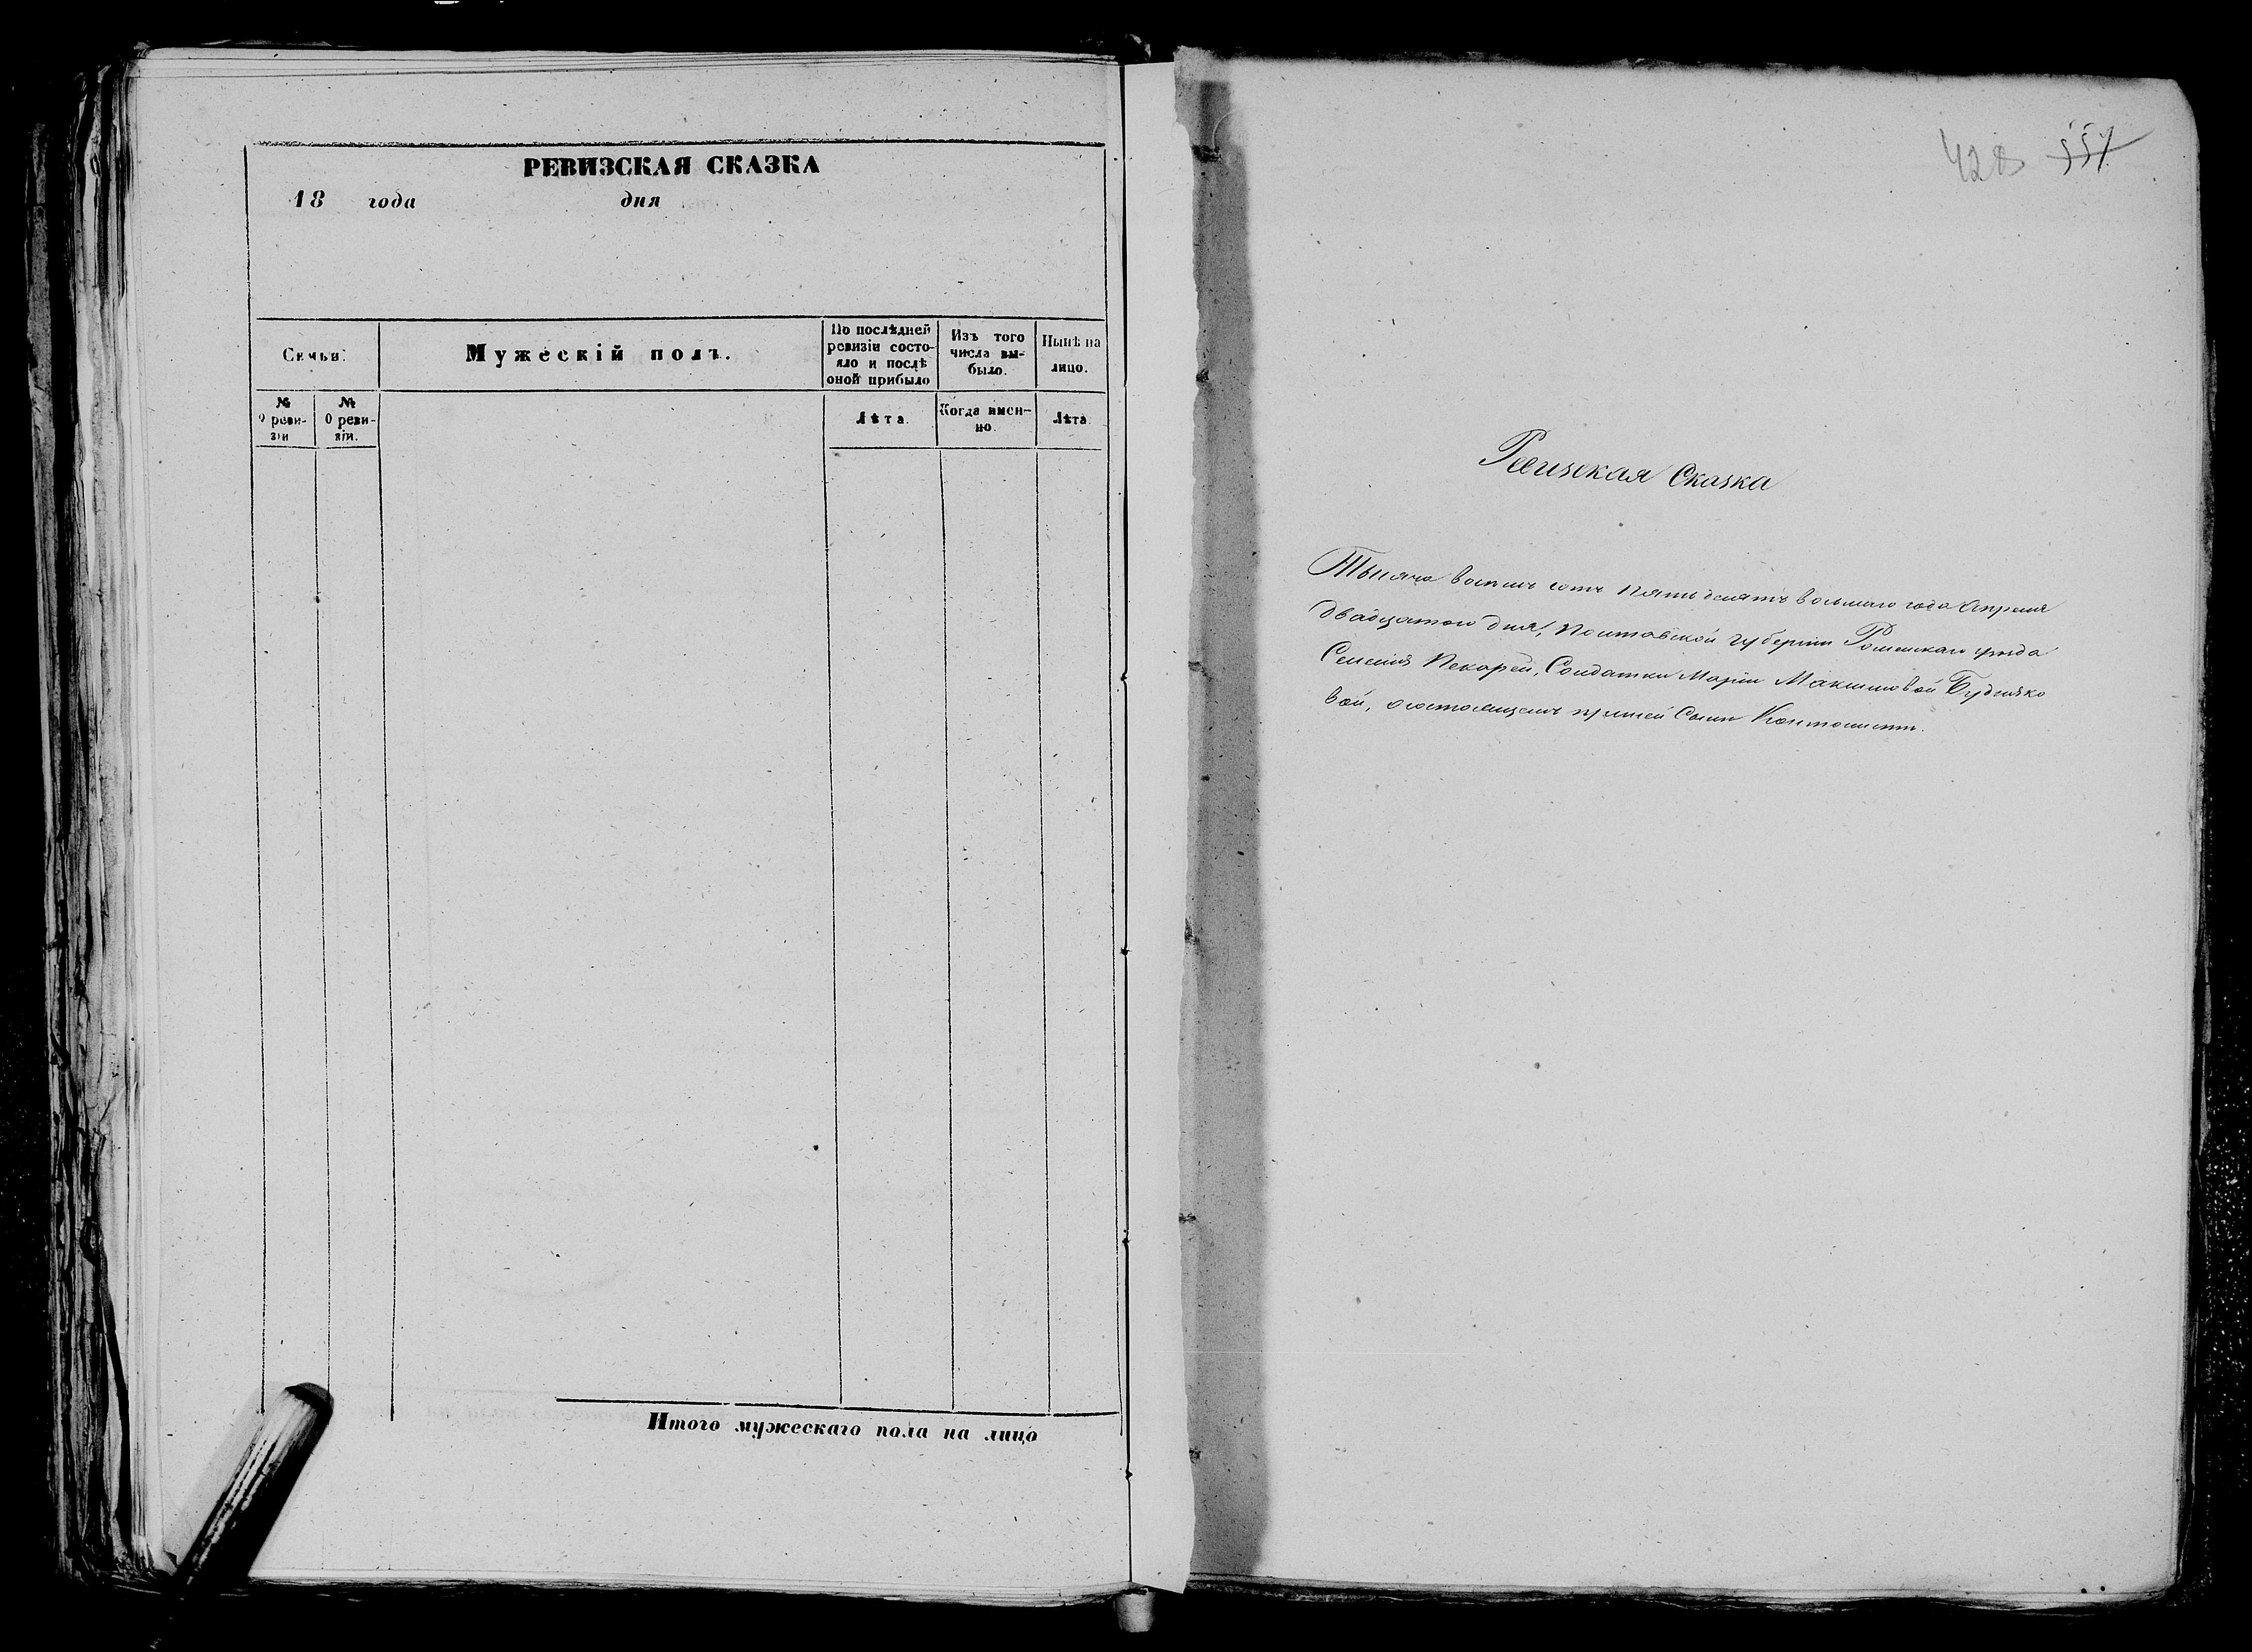 РЕВИЗСКАЯ СКАЗКА
18 года дня
Семьи.
Мужескій полъ.
По послѣдней ревизіи состояло и послѣ оной прибыло
Изъ того числа выбыло.
Нынѣ на лицо.
№ О ревизіи
№ О ревизіи.
Лѣта.
Когда именно.
Лѣта.
Итого мужескаго пола на лицо
428 557
Ревизская Сказка
Тысяча восемь сотъ пятьдесятъ восьмаго года Апреля
двадцатого дня, Полтавской губерніи Роменскаго уезда
Селенія Пекарей, Солдатки Маріи Максимовой Будняко
вой, о состоящемъ при ней Сыне Кантонисте.